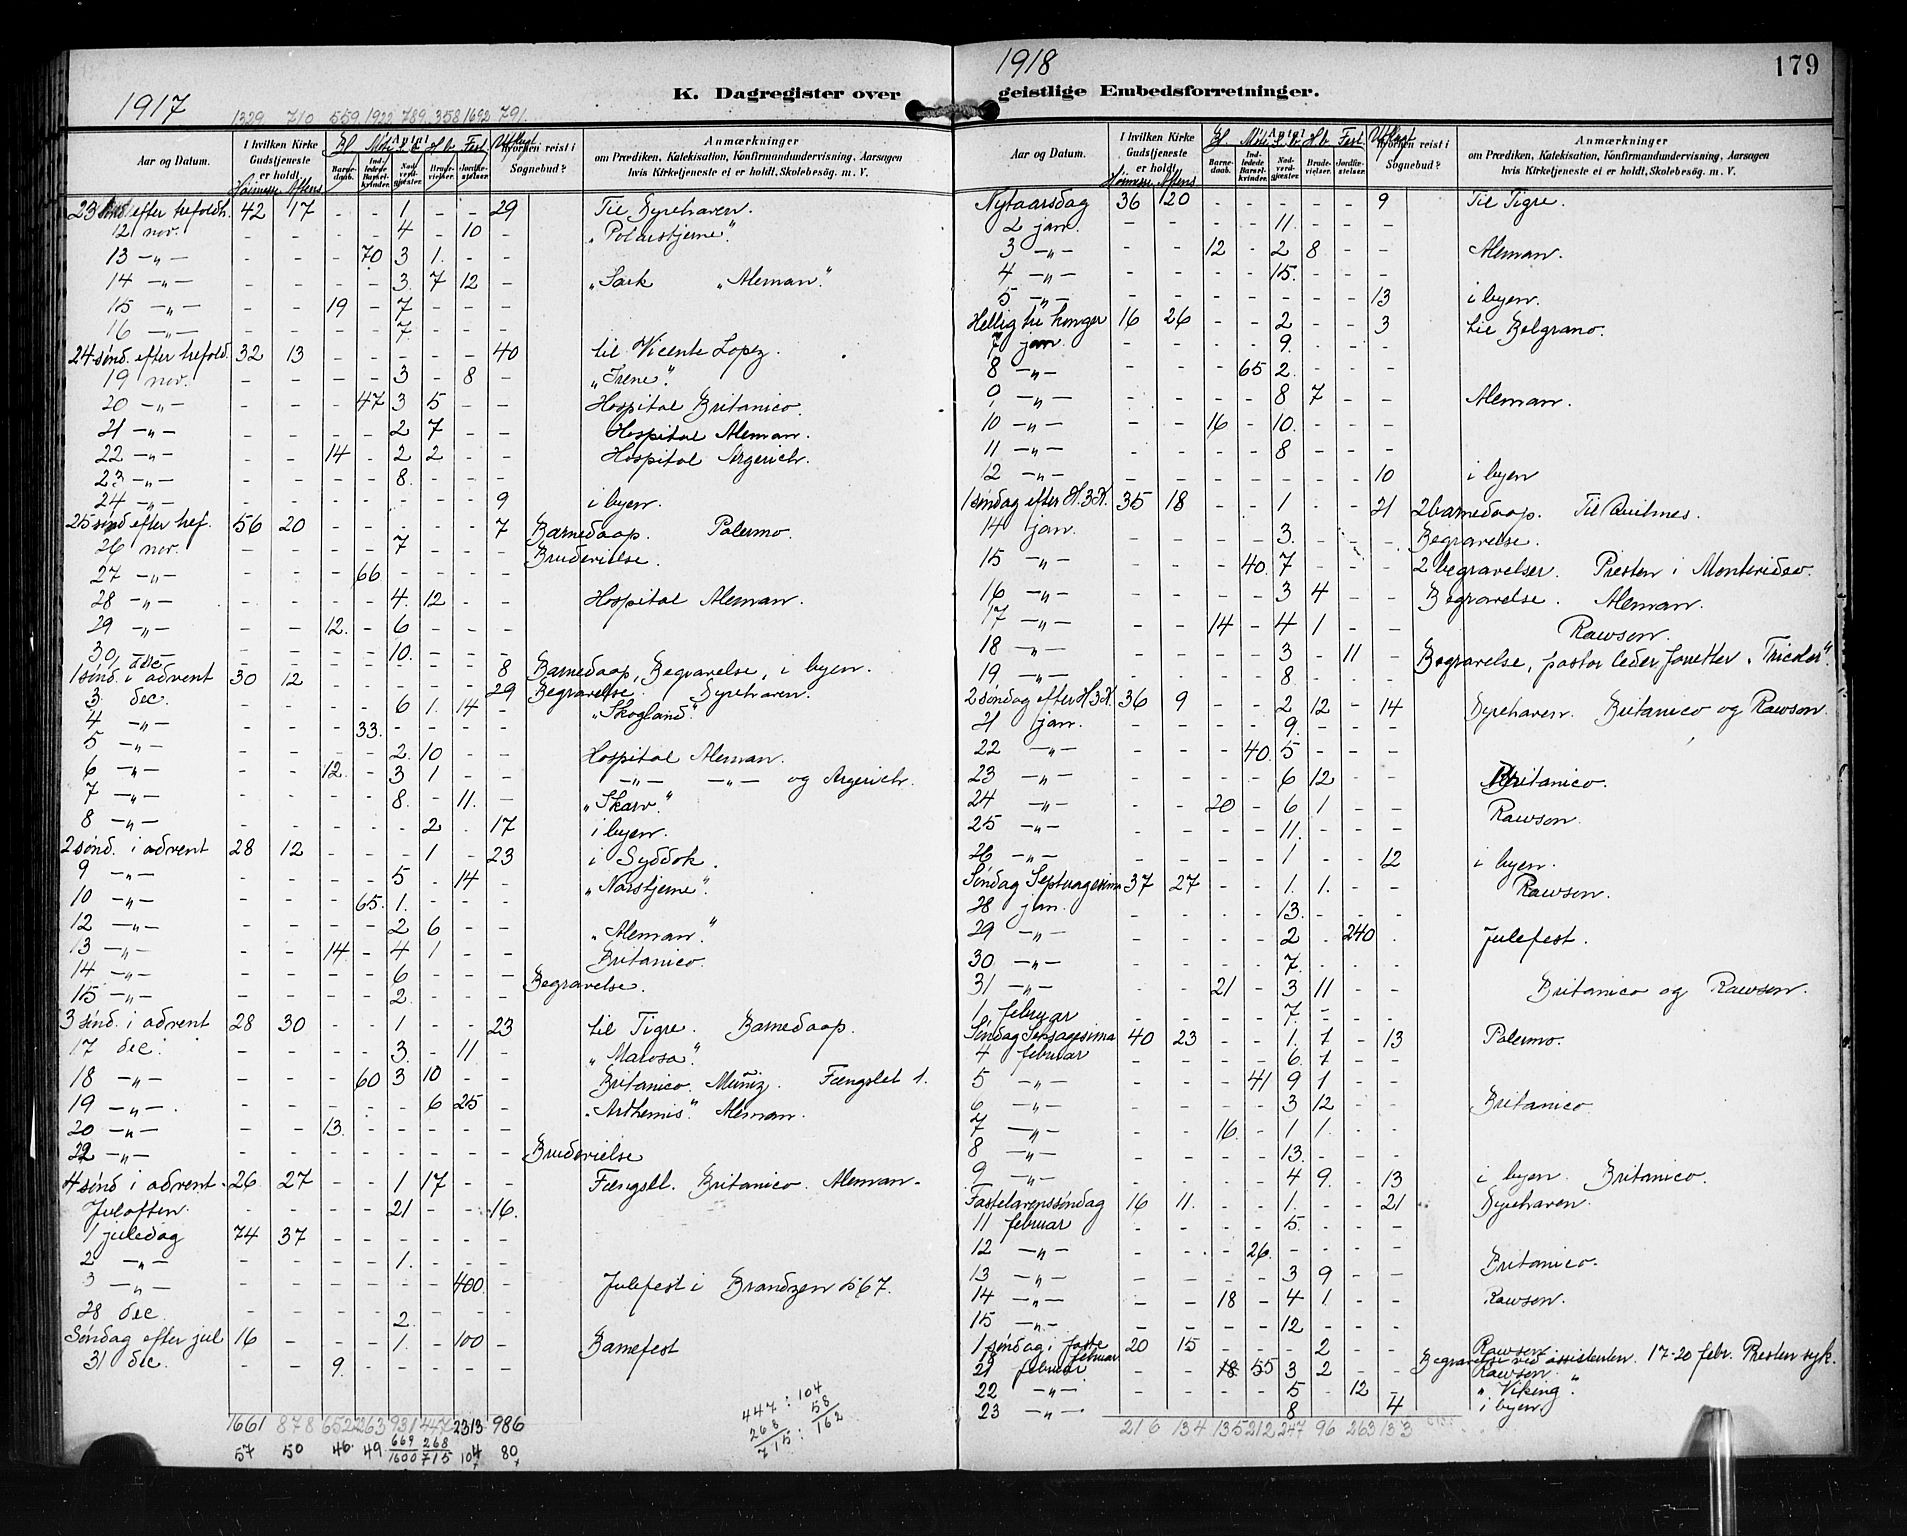 1917
K. Dagregister over
1329 710 559 1922 789 358 1692 791.
Aar og Datum.
I hvilken Kirke Gudstjeneste er holdt.
Høimesse Aftens
Antal
Barnedaab.
Indledede Barselkvinder.
Nadverdgjæster.
Brudevielser.
Jordfæstelser.
Hvorhen reist i Sognebud?
Anmærkninger
om Prædiken, Katekisation, Konfirmandundervisning, Aarsagen
hvis Kirketjeneste ei er holdt, Skolebesøg. m. V.
23 sønd efter trefoldh. 42 17 - - 1 - - 29 Til Dyrehaven.
12 nov. - - - - 4 - 10 - "Polarstjerne".
13 -„- - - - 70 3 1. - -
14 -„- - - - - 3. 7 12 - "Sark "Aleman".
15 -„- - - 19 - 7 - - -
16 -„- - - - - 7. - - -
24 sønd. efter trefold. 32 13 - - - - - 40 til Vicente Lopez.
19 nov. - - - - 3 - 8 - "Irene".
20 -„- - - - 47 3 5 - - Hospital Britanico.
21 -„- - - - - 2 7 - - Hospital Aleman.
22 -„- - - 14 - 2 2 - - Hospital Argerich.
23 -„- - - - - 8. - - -
24 -„- - - - - - - - 9 i byen.
25 sønd efter tref. 56 20 - - - - - 7 Barnedaap. Palermo.
26 nov. - - - - 7 - - - Brudevielse.
27 -„- - - - 66 - - - -
28 -„- - - - - 4. 12 - - Hospital Aleman.
29 -„- - - 12. - 6 - - -
30, - - - - 10. - - -
1 sønd. i advent 30 12 - - - - - 8 Barnedaap, Begravelse, i byen.
- - - - - - - 29 Begravelse. Dyrehaven.
3 dec. - - - - 6 1. 14 - "Skogland".
4 -„- - - - 33. - - - -
5 -„- - - - - 2. 10 - - Hospital Aleman.
6 -„- - - 12. - 3 1 - - -„- -„- og Argerich.
7 -„- - - - - 8. - 11. - "Skarv".
8 -„- - - - - - 2 - 17 i byen.
2 sønd. i advent 28 12 - - - 1 - 23 i Syddok.
9 -„- - - - - 5 - 14 - "Norstjerne".
10 -„- - - - 65. 1. - - -
12 -„- - - - - 2 6 - - "Aleman".
13 -„- - - 14 - 4 1 - - Britanico.
14 -„- - - - - 6 - - -
15 -„- - - - - 2. - - - Begravelse.
3 sønd. i advent 28 30 - - 1 - - 23 til Tigre. Barnedaap.
17 dec. - - - - 3. - 11 - "Marosa".
18 -„- - - - 60 3 10 - - Britanico. Muñiz. Fængslet 1.
19 -„- - - - - - 6 25 - "Arthemis". Aleman.
20 -„- - - 13. - - - - -
22 -„- - - - - - - - - Brudevielse
4 sønd i advent. 26 27 - - 1 17 - - Fængsel. Britanico. Aleman.
Juloften. - - - - 21 - - 16.
1 juledag 74 37 - - - - - -
2 -„- - - - - 1. - - -
3 -„- - - - - - - 400 - Julefest i Brandzen 567.
28 dec. - - - - 2. - - -
Søndag efter jul 16 - - - 1. - 100 - Barnefest
31 dec. - - 9. - - - - -
1661 878 652 2263 931 447 2313 986
57 50 46 49 669 268 104 80
1600 715
447 : 104
268 58
715 : 162
1918
179
geistlige Embedsforretninger.
Aar og Datum.
I hvilken Kirke Gudstjeneste er holdt.
Høimesse Aftens
Antal
Barnedaab.
Indledede Barselkvinder.
Nadverdgjæster.
Brudevielser.
Jordfæstelser.
Hvorhen reist i Sognebud?
Anmærkninger
om Prædiken, Katekisation, Konfirmandundervisning, Aarsagen
hvis Kirketjeneste ei er holdt, Skolebesøg. m. V.
Nytaarsdag 36 120 - - - - - 9 Til Tigre.
2 jan. - - - - 11. - - -
3 -„- - - 12 - 2 8 - - Aleman.
4 -„- - - - - 15. - - -
5 -„- - - - - - - - 13 i byen.
Hellig tre konger 16 26 - - 2 - - 3 til Belgrano.
7 jan. - - - - 9. - - -
8 -„- - - - 65 2. - - -
9 -„- - - - - 8 7 - - Aleman.
10 -„- - - 16 - 10. - - -
11 -„- - - - - 8 - - -
12 -„- - - - - - - - 10 i byen
1 søndag efter H.3.K. 35 18 - - 1 - - 21 2 barnedaap. Til Quilmes.
14 jan. - - - - 3. - - - Begravelse.
15 -„- - - - 40. 7 - - - 2 begravelser. Presten i Montevideo.
16 -„- - - - - 3 4 - - Begravelse. Aleman.
17 -„- - - 14 - 4 1 - - Rawson.
18 -„- - - - - 3 - 11 - Begravelse, pastor leder, foretter. "Tricolor".
19 -„- - - - - 8. - - -
2 søndag efter H.3.K. 36 9 - - 2 12 - 14 Dyrehaven. Britanico og Rawson.
21 jan. - - - - 9. - - -
22 -„- - - - 40. 5 - - -
23 -„- - - - - 6 12 - - Britanico.
24 -„- - - 20 - 6 1 - - Rawson.
25 -„- - - - - 11. - - -
26 -„- - - - - 1 - - 12 i byen.
Søndag Septuagesima 37 27 - - 1. 1. - - Rawson.
28 jan. - - - - 13. - - -
29 -„- - - - - 2 - 240 . Julefest.
30 -„- - - - - 7. - - -
31 -„- - - 21 - 3 11 - - Britanico og Rawson.
1. februar - - - - 7 - - -
Søndag Sexagesima 40 23 - - 1. 1 - 13 Palermo.
4 februar - - - - 6 1 - -
5 -„- - - - 41 9 1 - -
6 -„- - - - - 3 12 - - Britanico
7 -„- - - 16. - 1 1. - -
8 -„- - - - - 13. - - -
9 -„- - - - - 4 9. - 13 i byen. Britanico.
Fastelavenssøndag 16 11. - - 1. - - 21 Dyrehaven.
11 februar - - - - 5. - - -
12 -„- - - - 26. - - - -
13 -„- - - - - 3 9 - - Britanico.
14 -„- - - 18 - 4 1. - - Rawson.
15 -„- - - - - 12 - - -
1 søndag i faste 20 15 - - - 2 - - Rawson.
februar Begravelse ved assistenten. 17-20 febr. Presten syk.
21 februar - - 18. 55 3 2 - - Rawson.
22 -„- - - - - 5 - 12 - "Viking".
23 -„- - - - - 8 - - 4 i byen
216 134 135 212 247 96 263 133